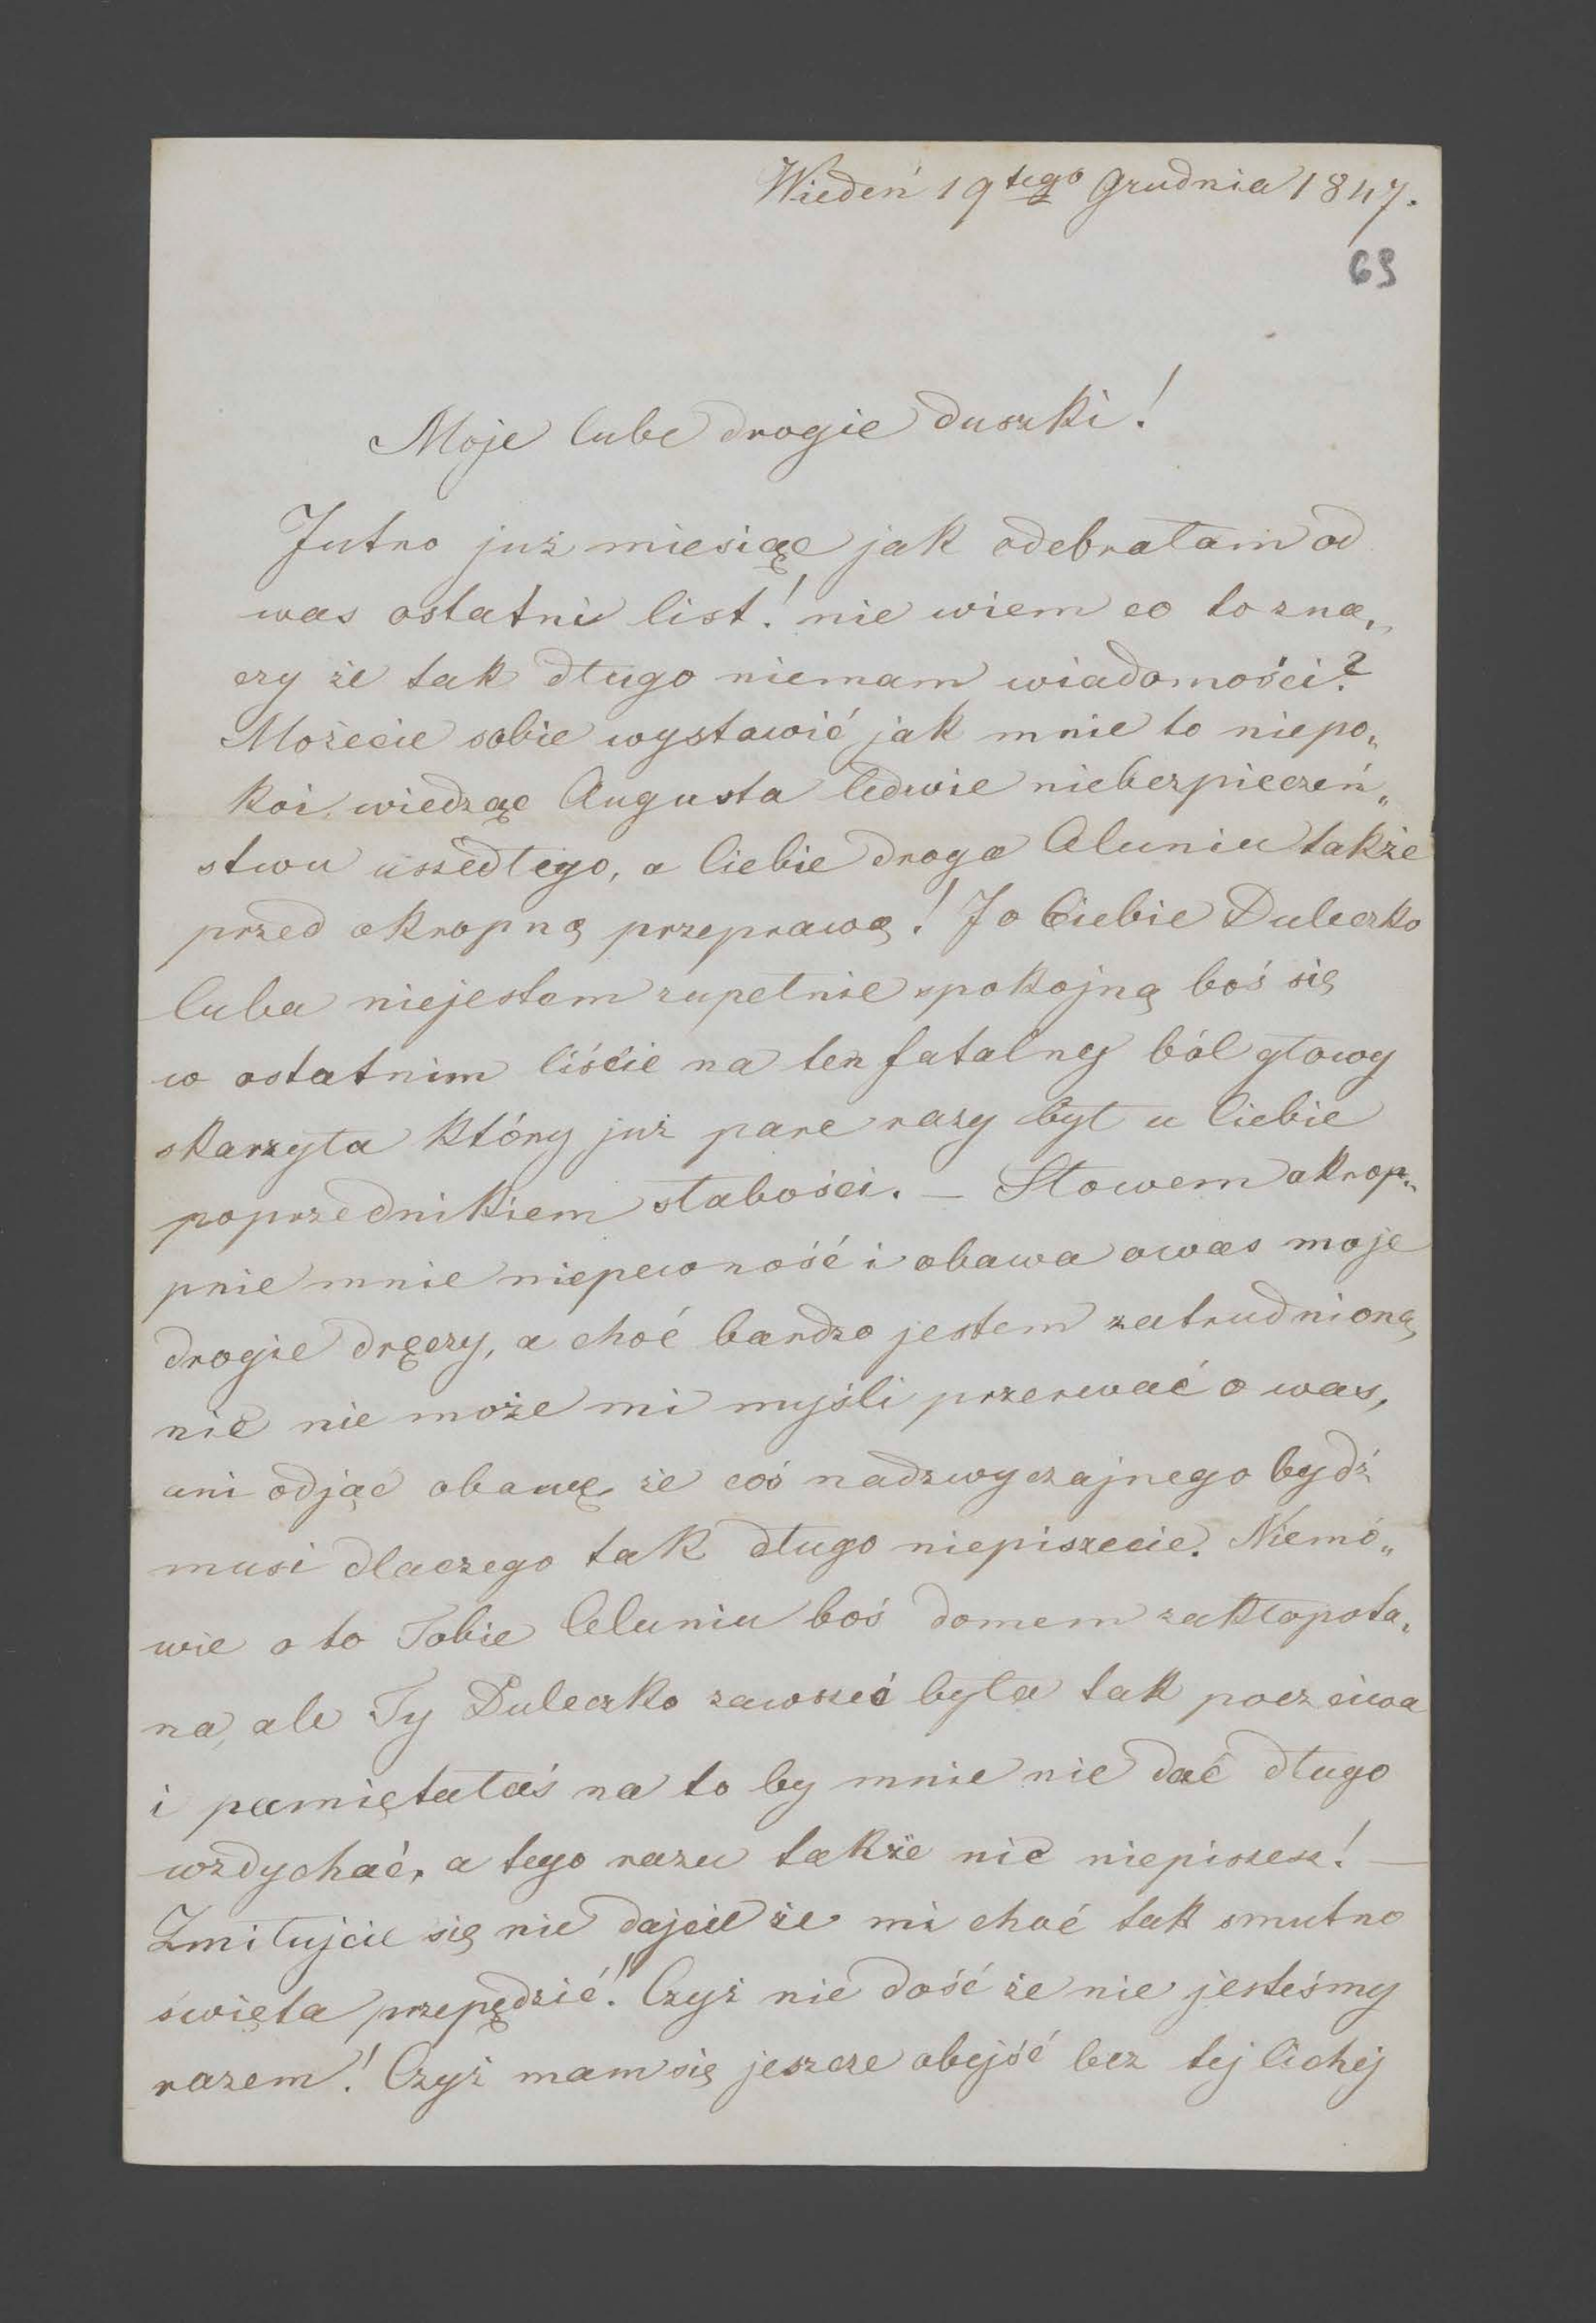 Wiedeń 19tego Grudnia 1847.
69
Moje lube drogie duszki!
Jutro już miesiąc jak odebrałam od
was ostatni list! nie wiem co to zna„
czy że tak długo niemam wiadomości?
Możecie sobie wystawić jak mnie to niepo„
koi, wiedząc Augusta ledwie niebezpieczeń„
stwu uszedłego, a Ciebie droga Aluniu także
przed okropną przeprawą! I o Ciebie Duleczko
luba niejestem zupełnie spokojną boś się
w ostatnim liście na ten fatalny ból głowy
skarżyła który już pare razy był u Ciebie
poprzednikiem słabości. — Słowem okrop„
pnie mnie niepewność i obawa o was moje
drogie dręczy, a choć bardzo jestem zatrudnioną,
nic nie może mi myśli przerwać o was,
ani odjąć obawę że coś nadzwyczajnego bydź
musi dlaczego tak długo niepiszecie. Niemó„
wie o to Tobie Aluniu boś domem zakłopota„
na, ale Ty Duleczko zawszeć była tak poczciwa
i pamiętałaś na to by mnie nie dać długo
wzdychać, a tego razu także nic niepiszesz! —
Zmiłujcie się nie dajcie że mi choć tak smutno
święta przepędzić! Czyż nie dość że nie jesteśmy
razem! Czyż mam się jeszcze obejść bez tej lichej